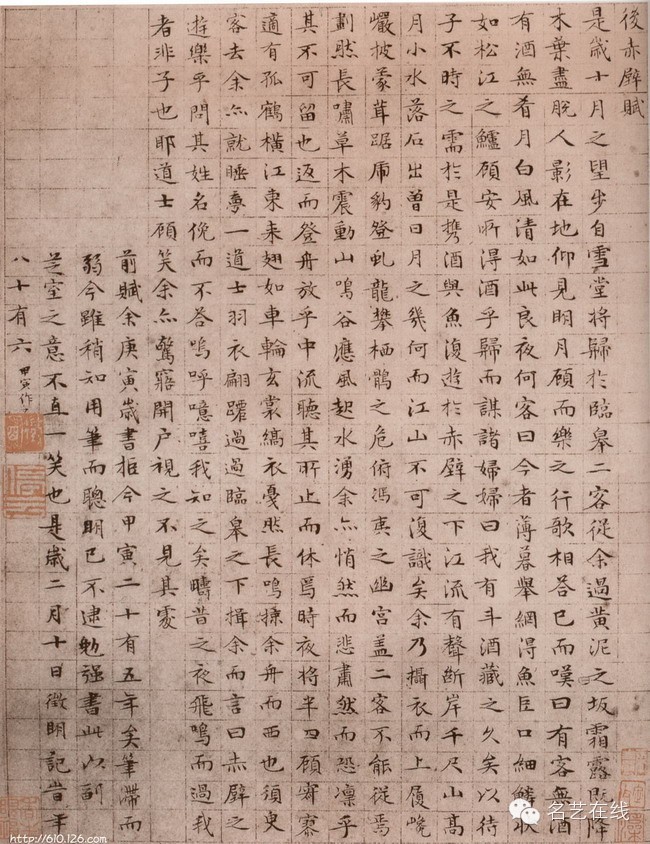 後赤壁賦
是歲十月之望步自雪堂將歸於臨皋二客從余過黃泥之坂霜露既降
木葉盡脫人影在地仰見明月顧而樂之行歌相答已而嘆曰有客無酒
有酒無肴月白風清如此良夜何客曰今者薄暮舉網得魚巨口細鱗狀
如松江之鱸顧安所得酒乎歸而謀諸婦婦曰我有斗酒藏之久矣以待
子不時之需於是攜酒與魚復遊於赤壁之下江流有聲斷岸千尺山高
月小水落石出曾日月之幾何而江山不可復識矣余乃攝衣而上履巉
巖披蒙茸踞虎豹登虬龍攀栖鶻之危俯馮夷之幽宮蓋二客不能從焉
劃然長嘯草木震動山鳴谷應風起水湧余亦悄然而悲肅然而恐凜乎
其不可留也返而登舟放乎中流聽其所止而休焉時夜將半四顧寂寥
適有孤鶴橫江東來翅如車輪玄裳縞衣戛然長鳴掠余舟而西也須臾
客去余亦就睡夢一道士羽衣翩躚過過臨皋之下揖余而言曰赤壁之
遊樂乎問其姓名俛而不答嗚呼噫嘻我知之矣疇昔之夜飛鳴而過我
者非子也耶道士顧笑余亦驚寤開戶視之不見其處
前賦余庚寅歲書距今甲寅二十有五年矣筆滯而
弱今雖稍知用筆而聰明已不逮勉強書此以副
芝室之意不直一笑也是歲二月十日徵明記昔年
八十有六
甲寅作
名艺在线
http://610.126.com